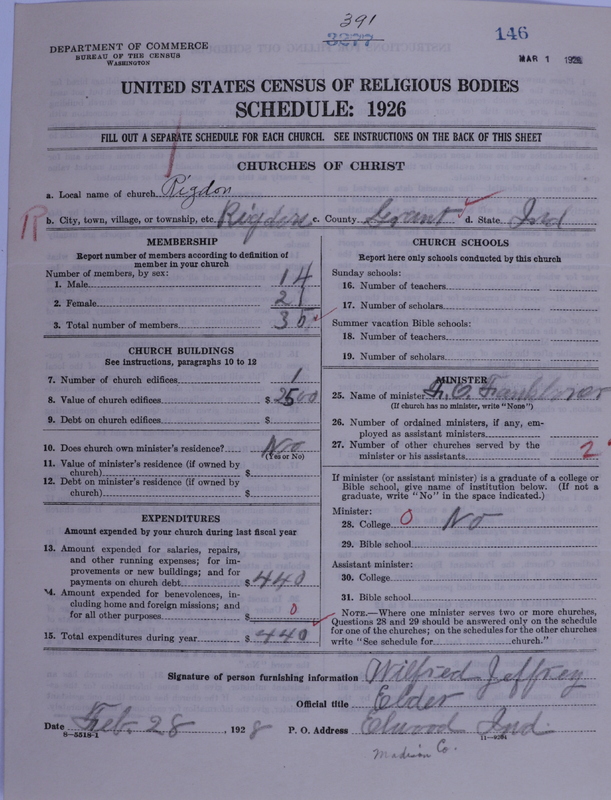 391
3277
146
MAR 1 1928
DEPARTMENT OF COMMERCE
BUREAU OF THE CENSUS
WASHINGTON
UNITED STATES CENSUS OF RELIGIOUS BODIES
SCHEDULE: 1926
FILL OUT A SEPARATE SCHEDULE FOR EACH CHURCH. SEE INSTRUCTIONS ON THE BACK OF THIS SHEET
CHURCHES OF CHRIST
a. Local name of church Rigdon
R b. City, town, village, or township, etc. Rigdon c. County Grant d. State Ind
MEMBERSHIP
Report number of members according to definition of
member in your church
Number of members, by sex:
1. Male 14
2. Female 21
3. Total number of members 35
CHURCH BUILDINGS
See instructions, paragraphs 10 to 12
7. Number of church edifices 1
8. Value of church edifices $ 2500
9. Debt on church edifices $
10. Does church own minister's residence? No
(Yes or No)
11. Value of minister's residence (if owned by
church) $
12. Debt on minister's residence (if owned by
church) $
EXPENDITURES
Amount expended by your church during last fiscal year
13. Amount expended for salaries, repairs,
and other running expenses; for im-
provements or new buildings; and for
payments on church debt $ 440
14. Amount expended for benevolences, in-
cluding home and foreign missions; and
for all other purposes $ 0
15. Total expenditures during year $ 440
CHURCH SCHOOLS
Report here only schools conducted by this church
Sunday schools:
16. Number of teachers
17. Number of scholars
Summer vacation Bible schools:
18. Number of teachers
19. Number of scholars
MINISTER
25. Name of minister
(If church has no minister, write "None")
26. Number of ordained ministers, if any, em-
ployed as assistant ministers
27. Number of other churches served by the
minister or his assistants 2
If minister (or assistant minister) is a graduate of a college or
Bible school, give name of institution below. (If not a
graduate, write "No" in the space indicated.)
Minister:
28. College 0 No
29. Bible school
Assistant minister:
30. College
31. Bible school
NOTE.—Where one minister serves two or more churches,
Questions 28 and 29 should be answered only on the schedule
for one of the churches; on the schedules for the other churches
write "See schedule for church."
Signature of person furnishing information Wilfred Jeffrey
Official title Elder
Date Feb. 28, 1928 P. O. Address Elwood Ind.
8—5518-1
Madison Co.